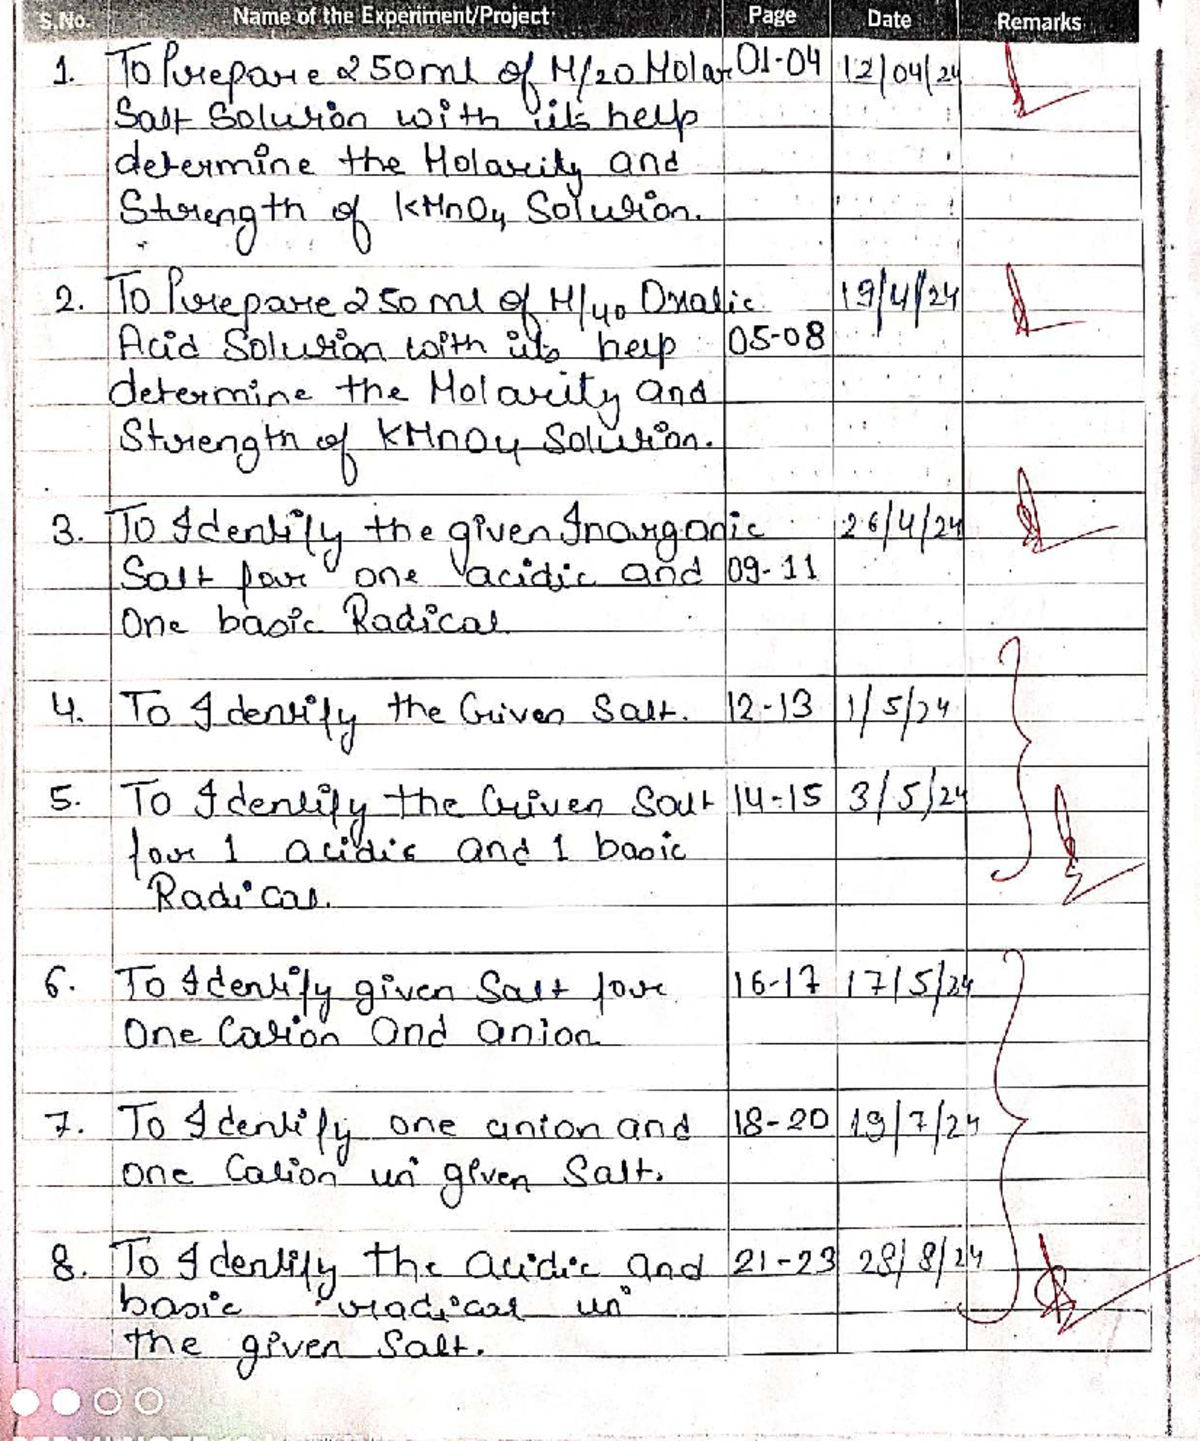 S.No. Name of the Experiment/Project Page Date Remarks
1. To Prepare 250ml of M/20 Molar 01-04 12/04/24
Salt Solution with its help
determine the Molarity and
Strength of KMnO4 Solution.
2. To Prepare 250 ml of M/40 Oxalic 19/4/24
Acid Solution with its help 05-08
determine the Molarity and
Strength of KMnO4 Solution.
3. To Identify the given Inorganic 26/4/24
Salt for one acidic and 09-11
One basic Radical
4. To Identify the Given Salt. 12-13 1/5/24
5. To Identify the Given Salt 14-15 3/5/24
for 1 acidic and 1 basic
Radical.
6. To Identify given Salt for 16-17 17/5/24
One Cation and anion
7. To Identify one anion and 18-20 19/7/24
one Cation in given Salt.
8. To Identify the acidic and 21-23 28/8/24
basic radical in
the given Salt.